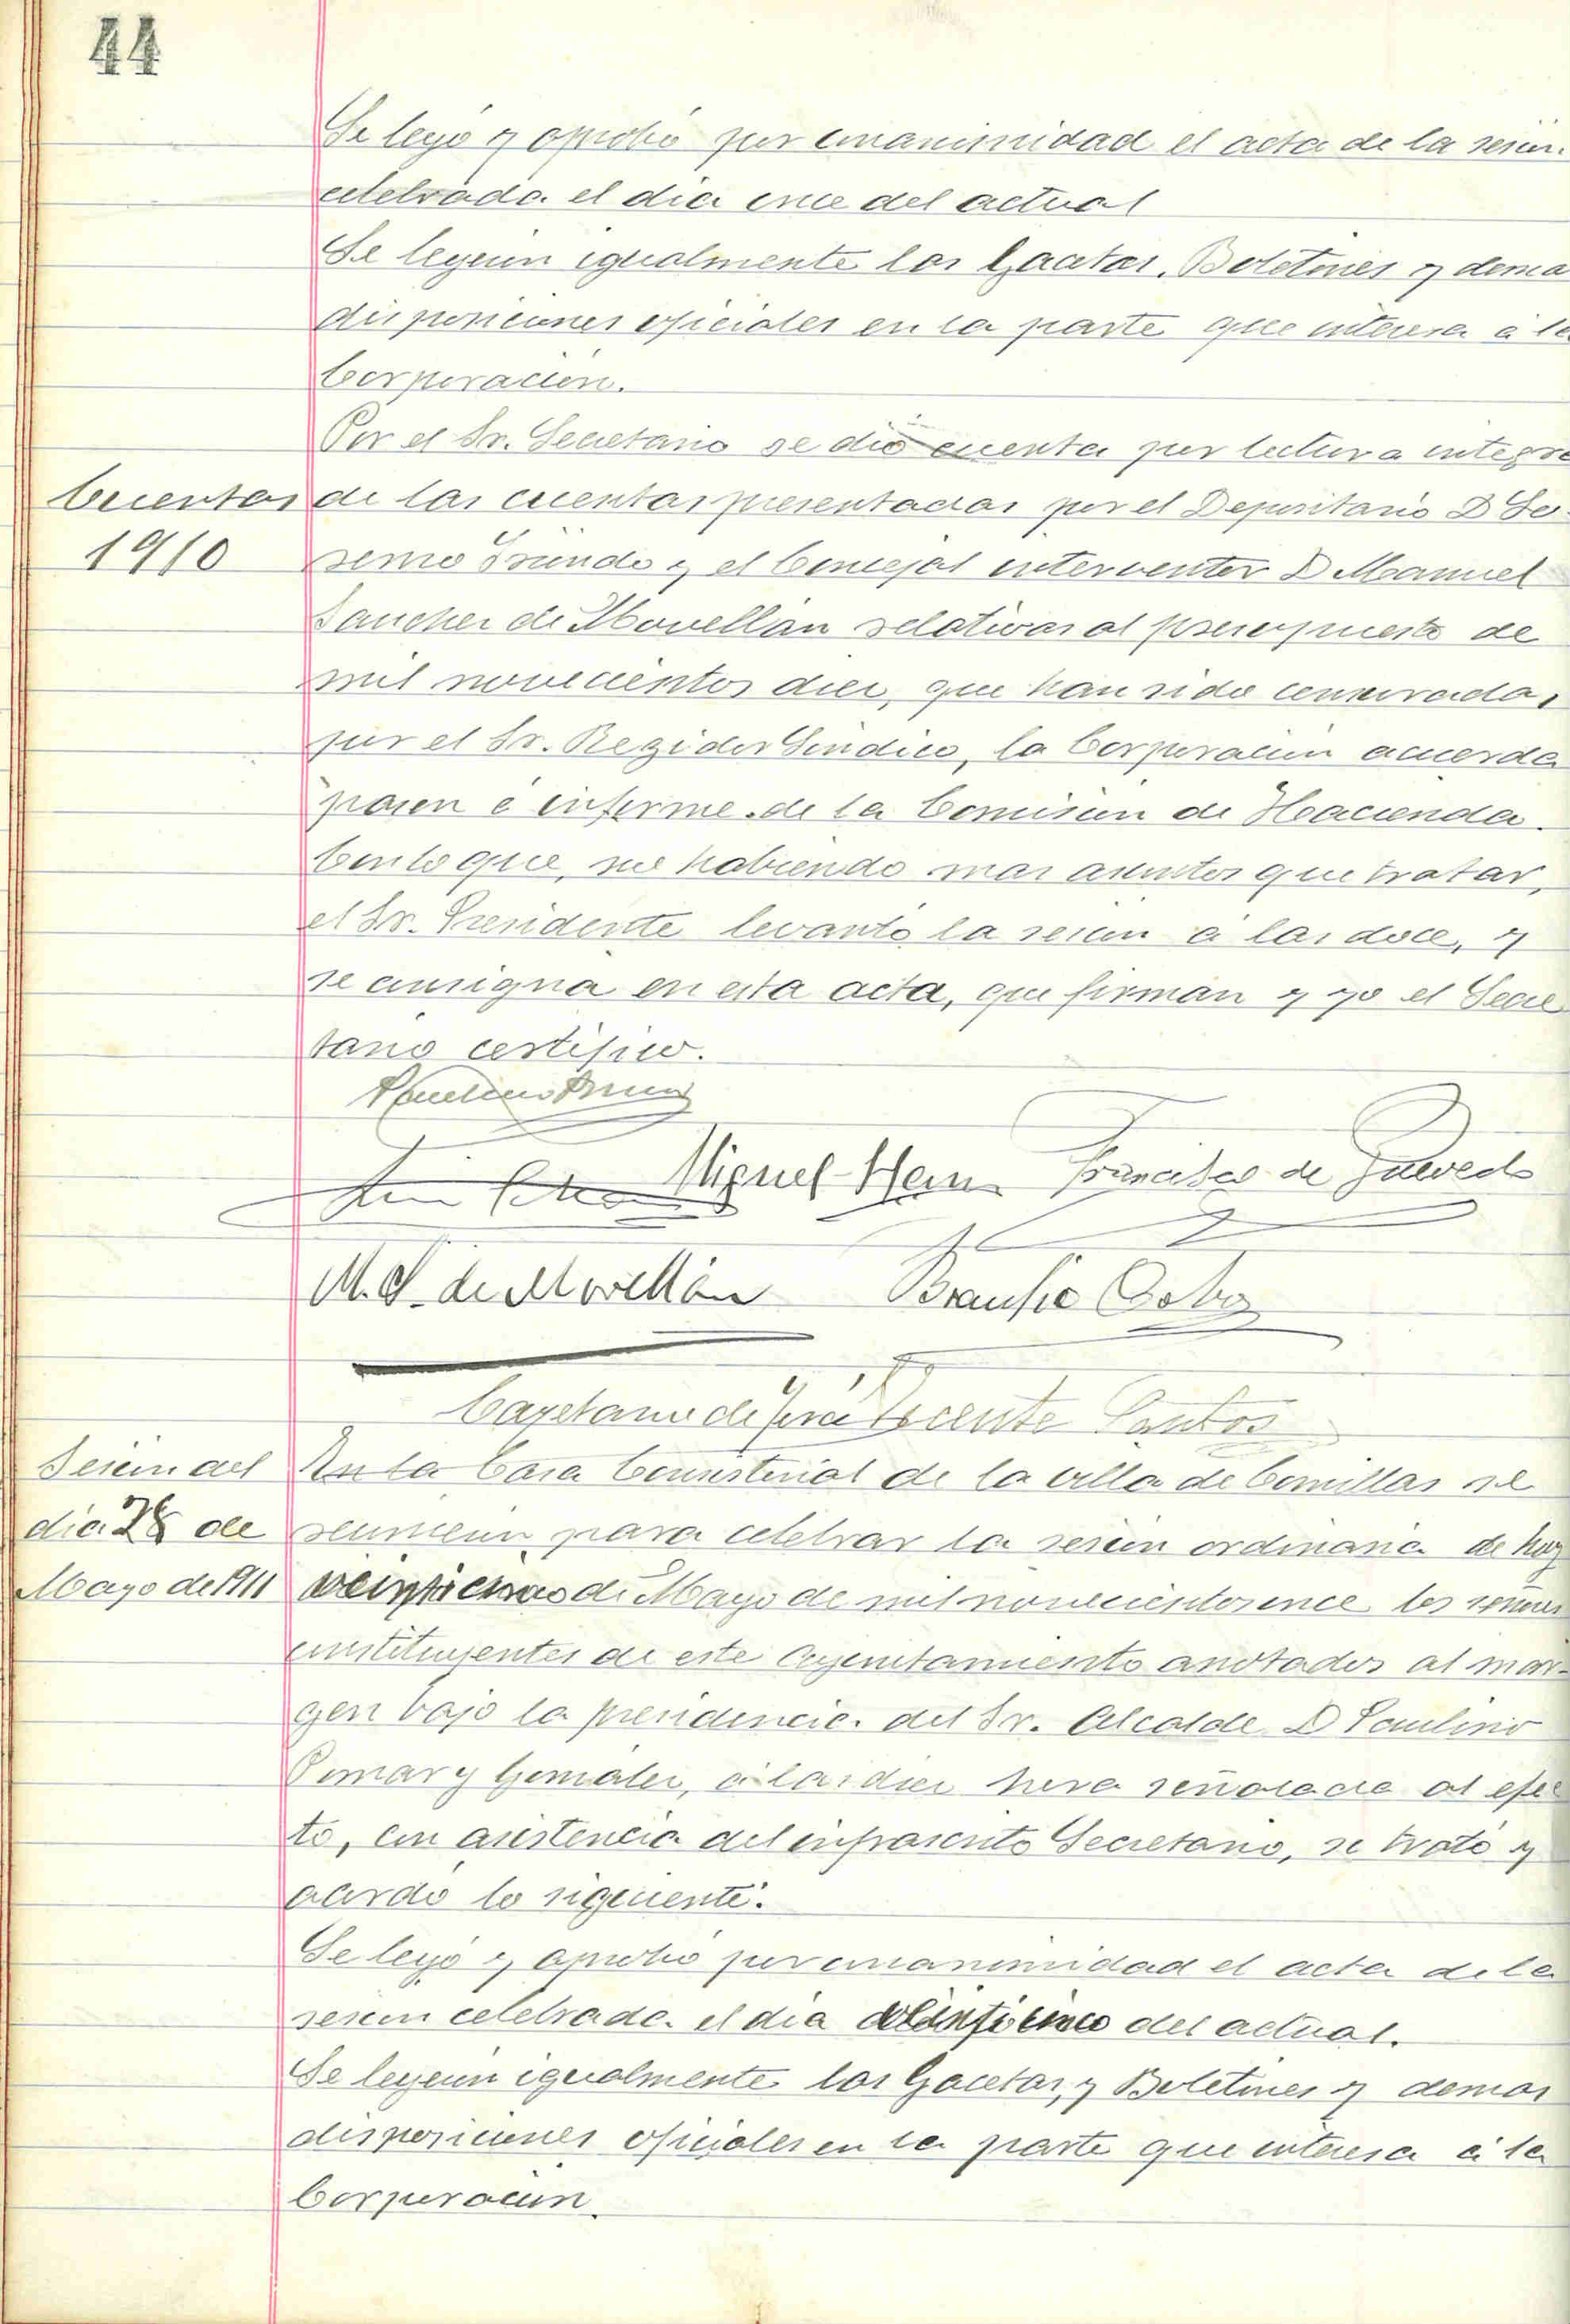 44
Se leyó y aprobó por unanimidad el acta de la sesion
celebrada el dia once del actual
Se leyeron igualmente las Gacetas, Boletines y dema
disposiciones oficiales en la parte que interesa á la
Corporacion.
Por el Sr. Secretario se dió cuenta por lectura integra
Cuentas
1910
de las cuentas presentadas por el Depositario D Ge-
y el Concejal interventor D Manuel
Sanchez de Movellán relativas al presupuesto de
mil novecientos diez, que han sido censuradas
por el Sr. Regidor Sindico, la Corporacion acuerda
pasen á informe de la Comision de Hacienda.
Con lo que, no habiendo mas asuntos que tratar,
el Sr. Presidente levantó la sesion á las doce, y
se consigna en esta acta, que firman y yo el Secre
tario certifico.
Paulino
Miguel Francisco de Quevedo
M. S. de Movellán Braulio Cobo
Cayetano de Vicente Santos
Sesion del
dia 28 de
Mayo de 1911
En la Casa Consistorial de la villa de Comillas se
reunieron para celebrar la sesion ordinaria de hoy
de Mayo de mil novecientos once los señores
constituyentes de este Ayuntamiento anotados al mar-
gen bajo la presidencia del Sr. Alcalde D Paulino
y Gonzalez, á las diez hora señalada al efec
to, con asistencia del infrascrito Secretario, se trató y
acordó lo siguiente:
Se leyó y aprobó por unanimidad el acta de la
sesion celebrada el dia del actual.
Se leyeron igualmente las Gacetas, y Boletines y demas
disposiciones oficiales en la parte que interesa á la
Corporacion.